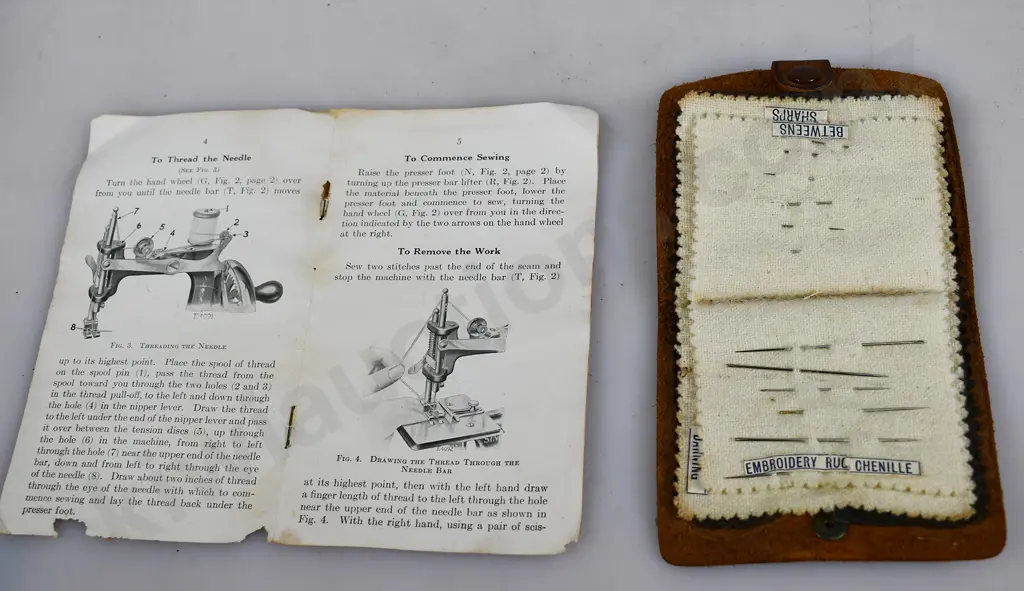 4
To Thread the Needle
(SEE FIG. 2)
Turn the hand wheel (G, Fig. 2, page 2) over
from you until the needle bar (T, Fig. 2) moves
1
2
3
4
5
6
7
8
FIG. 3. THREADING THE NEEDLE
up to its highest point. Place the spool of thread
on the spool pin (1), pass the thread from the
spool toward you through the two holes (2 and 3)
in the thread pull-off, to the left and down through
the hole (4) in the nipper lever. Draw the thread
to the left under the end of the nipper lever and pass
it over between the tension discs (5), up through
the hole (6) in the machine, from right to left
through the hole (7) near the upper end of the needle
bar, down and from left to right through the eye
of the needle (8). Draw about two inches of thread
through the eye of the needle with which to com-
mence sewing and lay the thread back under the
presser foot.
5
To Commence Sewing
Raise the presser foot (N, Fig. 2, page 2) by
turning up the presser bar lifter (R, Fig. 2). Place
the material beneath the presser foot, lower the
presser foot and commence to sew, turning the
hand wheel (G, Fig. 2) over from you in the direc-
tion indicated by the two arrows on the hand wheel
at the right.
To Remove the Work
Sew two stitches past the end of the seam and
stop the machine with the needle bar (T, Fig. 2)
FIG. 4. DRAWING THE THREAD THROUGH THE
NEEDLE BAR
at its highest point, then with the left hand draw
a finger length of thread to the left through the hole
near the upper end of the needle bar as shown in
Fig. 4. With the right hand, using a pair of scis-
SHARPS
BETWEENS
EMBROIDERY RUG CHENILLE